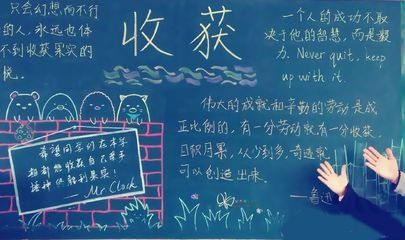 只会幻想而不行
的人，永远也体
不到收获果实的
悦。
收获
一个人的成功不取
决于他的智慧，而是毅
力. Never quit, keep
up with it.
伟大的成就和辛勤的劳动是成
正比例的，有一分劳动就有一分收获，
日积月累，从少到多，奇迹就
可以创造出来。
——鲁迅
希望同学们在本学
期都能收获自己亲手
播种的胜利果实！
——Mr Clock